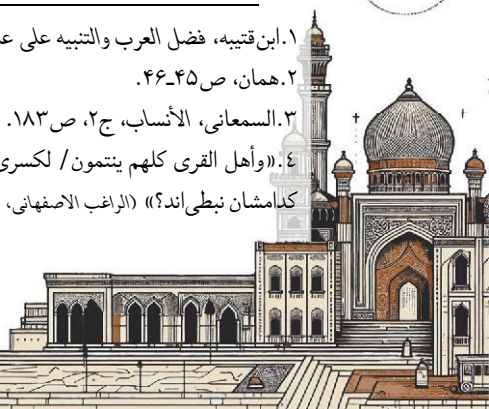 ۱.ابن‌قتیبه، فضل العرب والتنبیه علی
۲.همان، ص۴۵ـ۴۶.
۳.السمعانی، الأنساب، ج۲، ص۱۸۳.
٤.«وأهل القری کلهم ینتمون/ لکسری
کدامشان نبطی‌اند؟» (الراغب الاصفهانی،